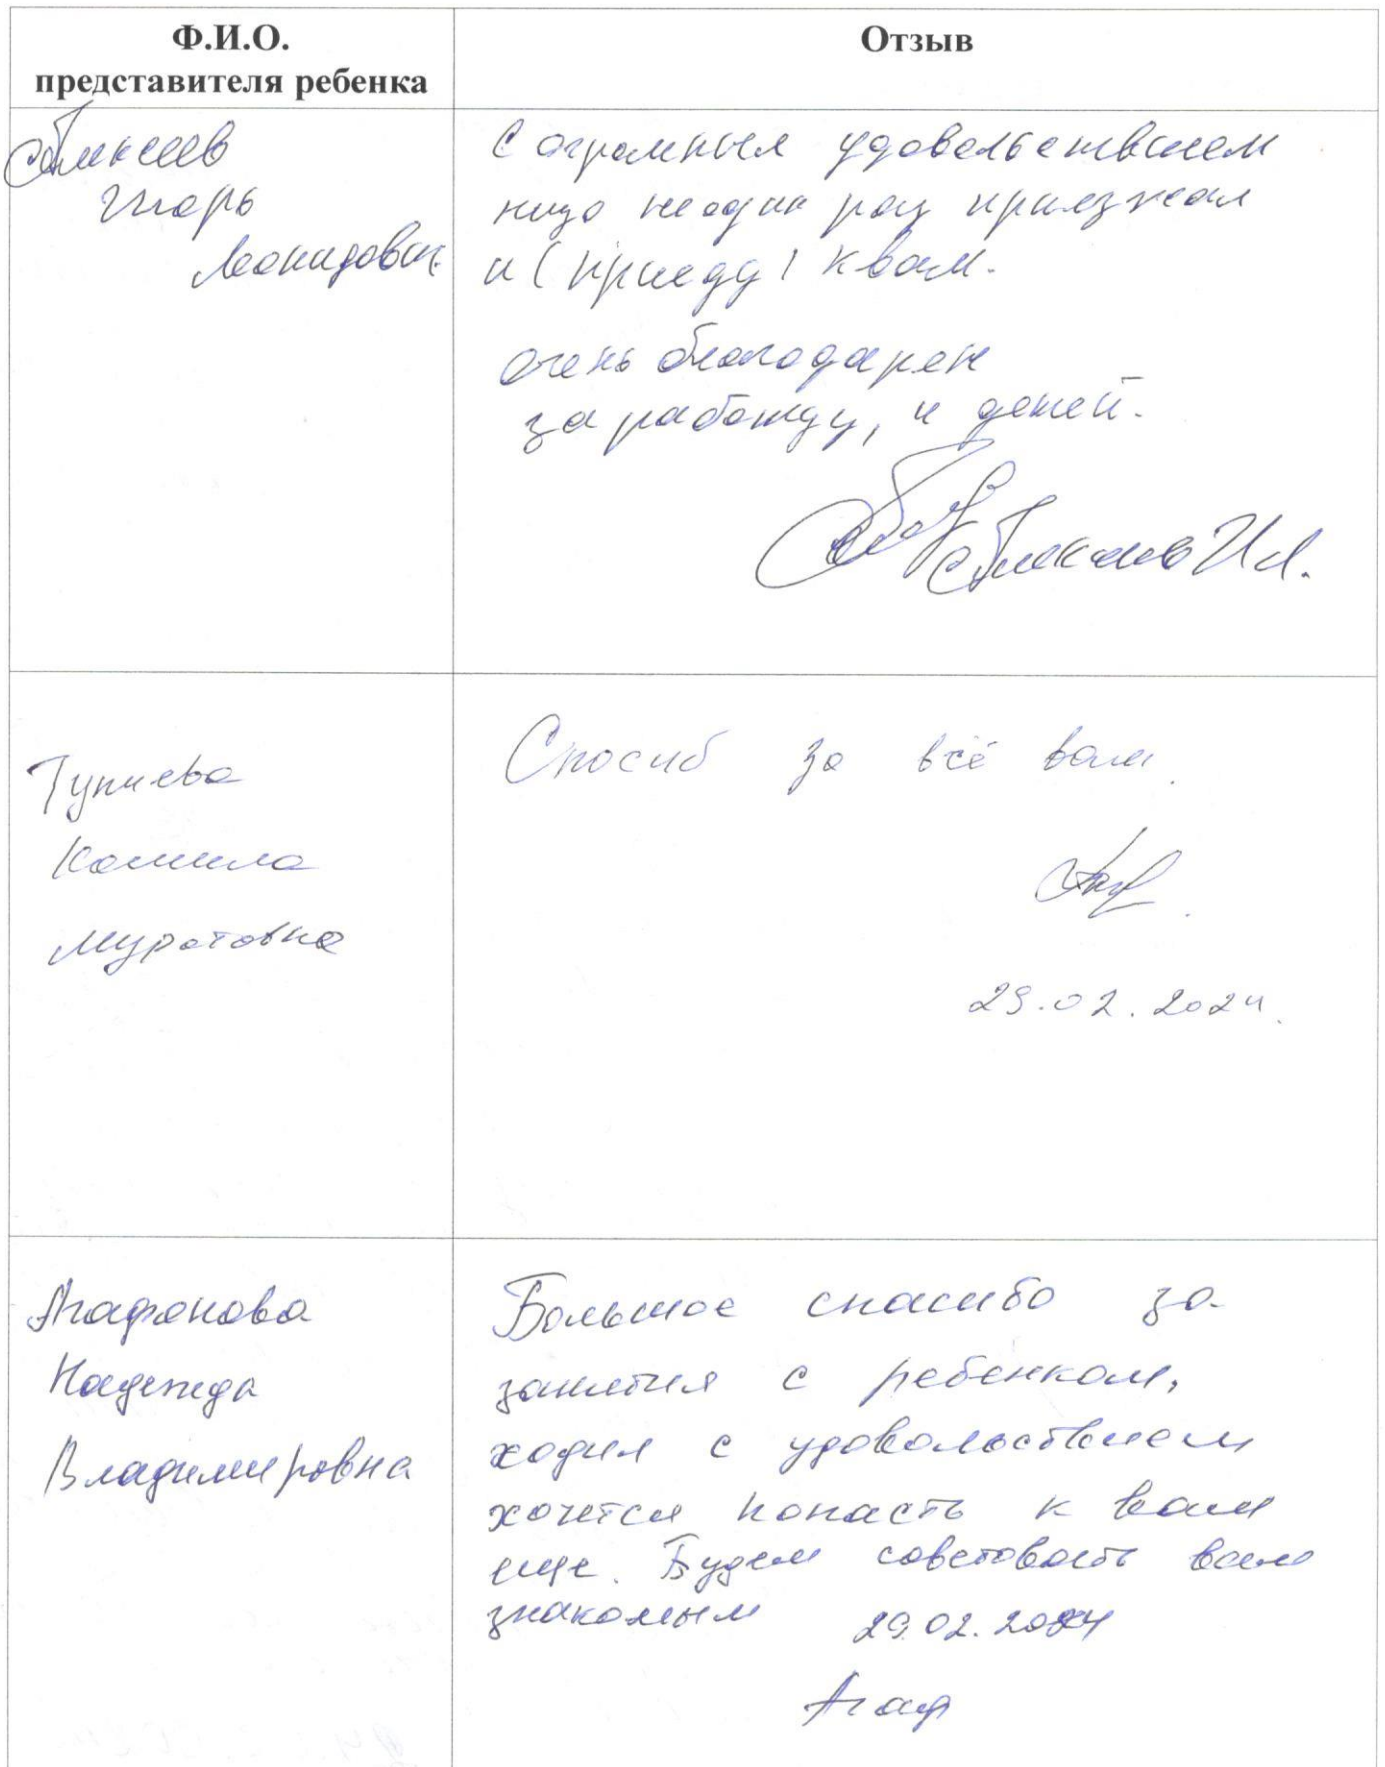 Ф.И.О.
представителя ребенка
Отзыв
Игорь
Леонидович
С огромным удовольствием
не один раз приезжал
и (приеду) к вам.
очень благодарен
за работу, и детей.
И Л.
Тупиева
Камила
Муратовна
Спосиб за всё вам.
29.02.2024.
Агафонова
Надежда
Владимировна
Большое спасибо за
занятия с ребенком,
ходил с удовольствием
хочется попасть к вам
еще. Будем советовать вас
знакомым 29.02.2024
Агаф